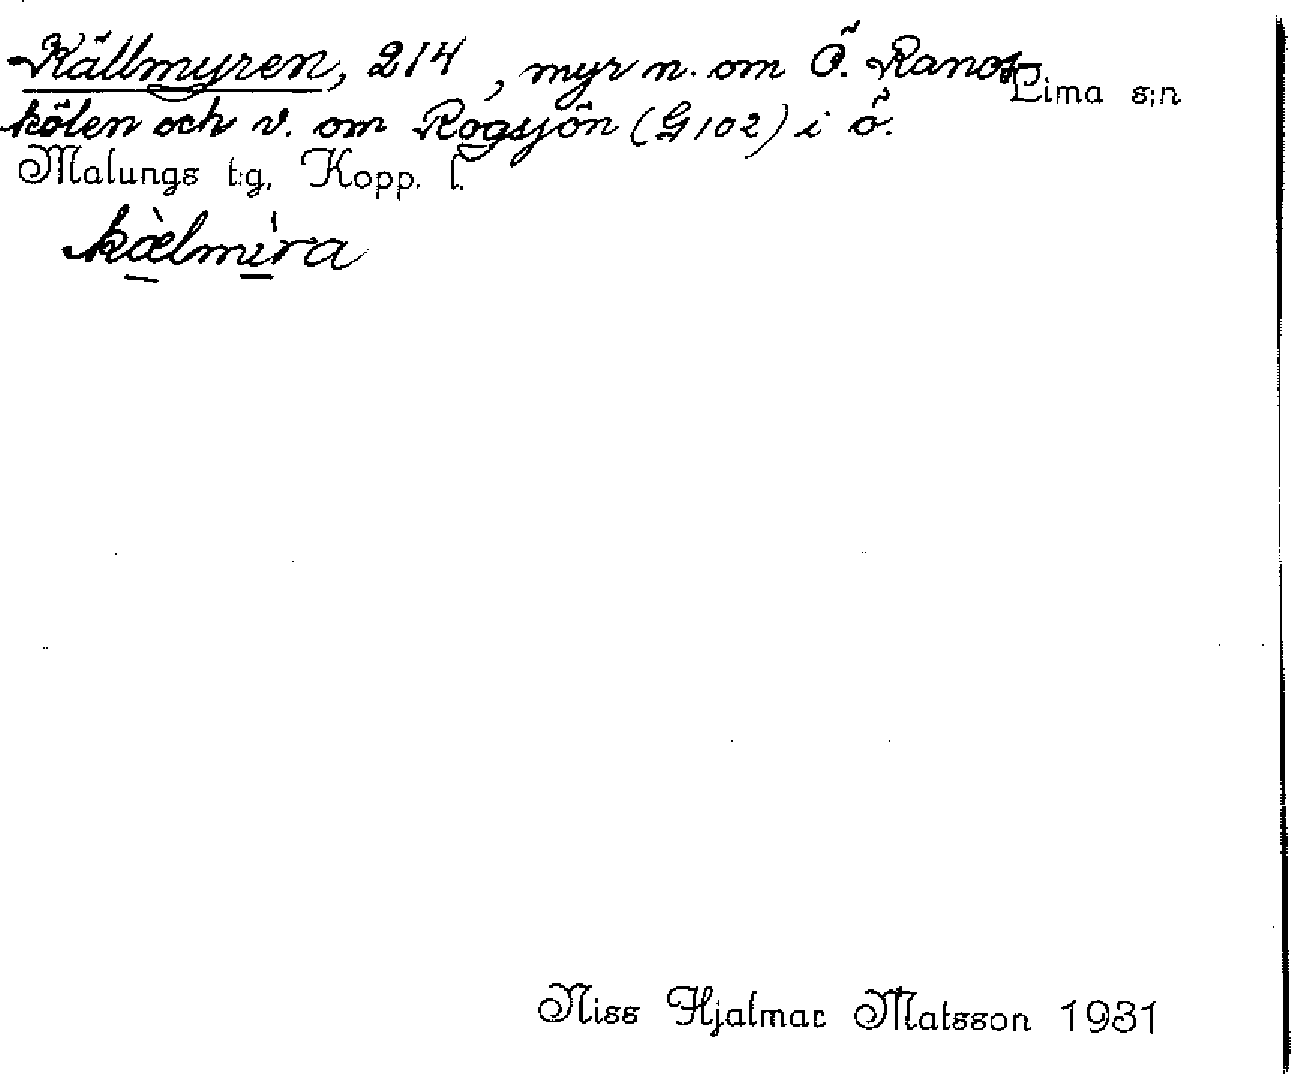 Källmyren, 214, myr n. om Ö. Ranos
Lima s:n
kölen och v. om Rogsjön (G 102) i ö.
Malungs t:g, Kopp. l.
kælmira
Niss Hjalmar Matsson 1931